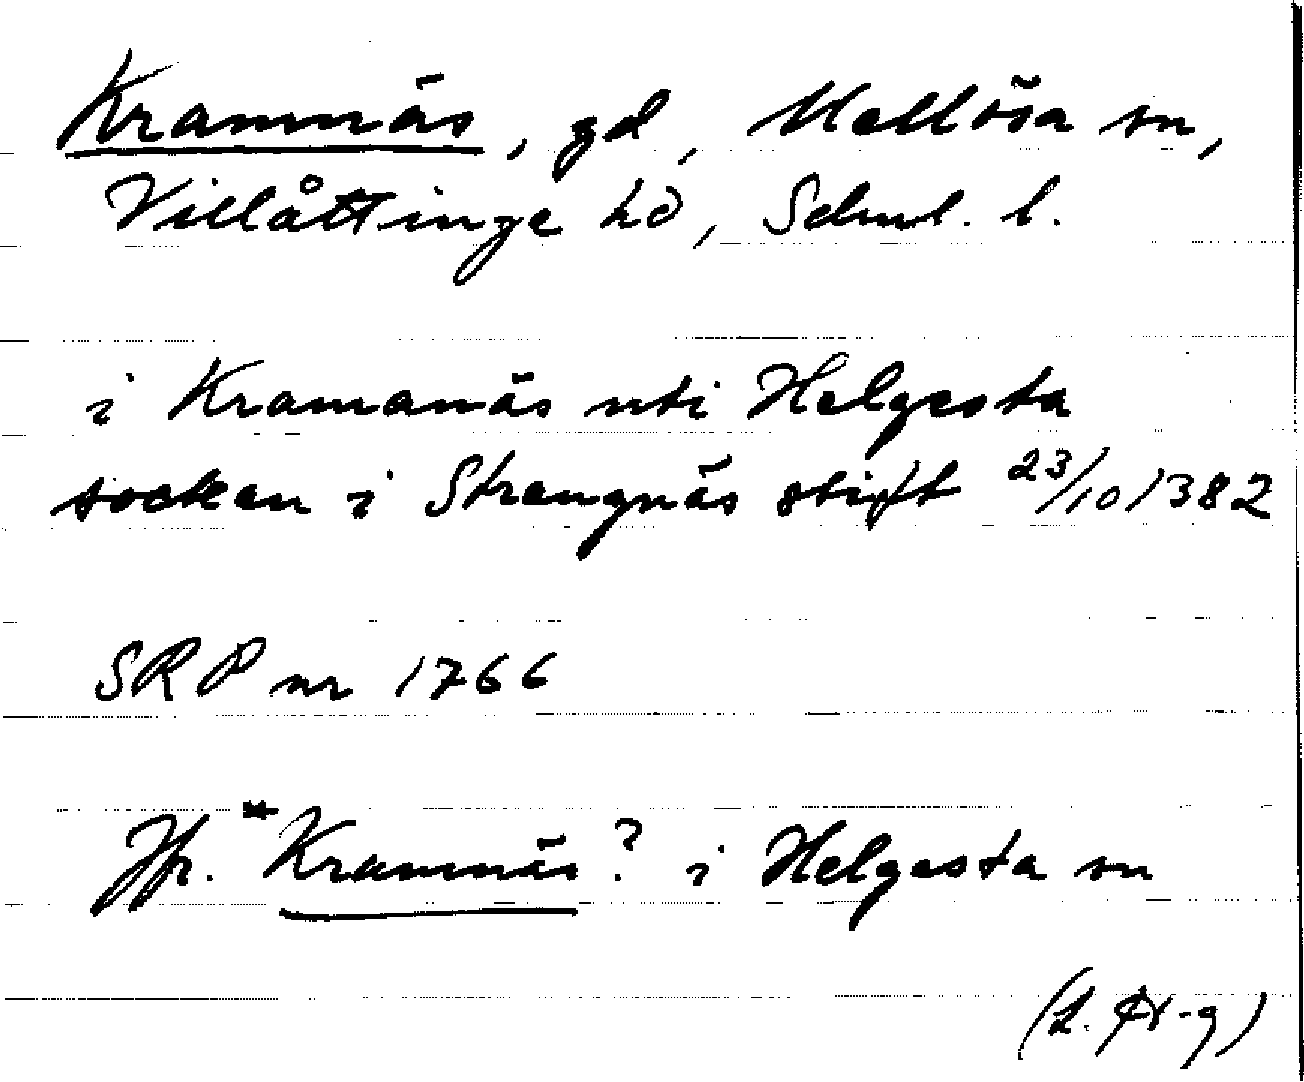 Kramnäs, gd, Mellösa sn,
Villåttinge hd, Södml. l.
i Kramanäs uti Helgesta
socken i Strengnäs stift 23/10 1382
SRP nr 1766
Jfr. *Kramnäs? i Helgesta sn